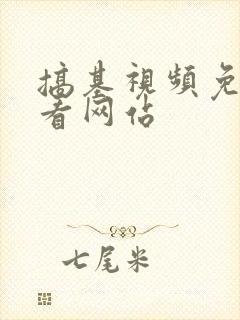 搞基視頻免
看网站
七尾米